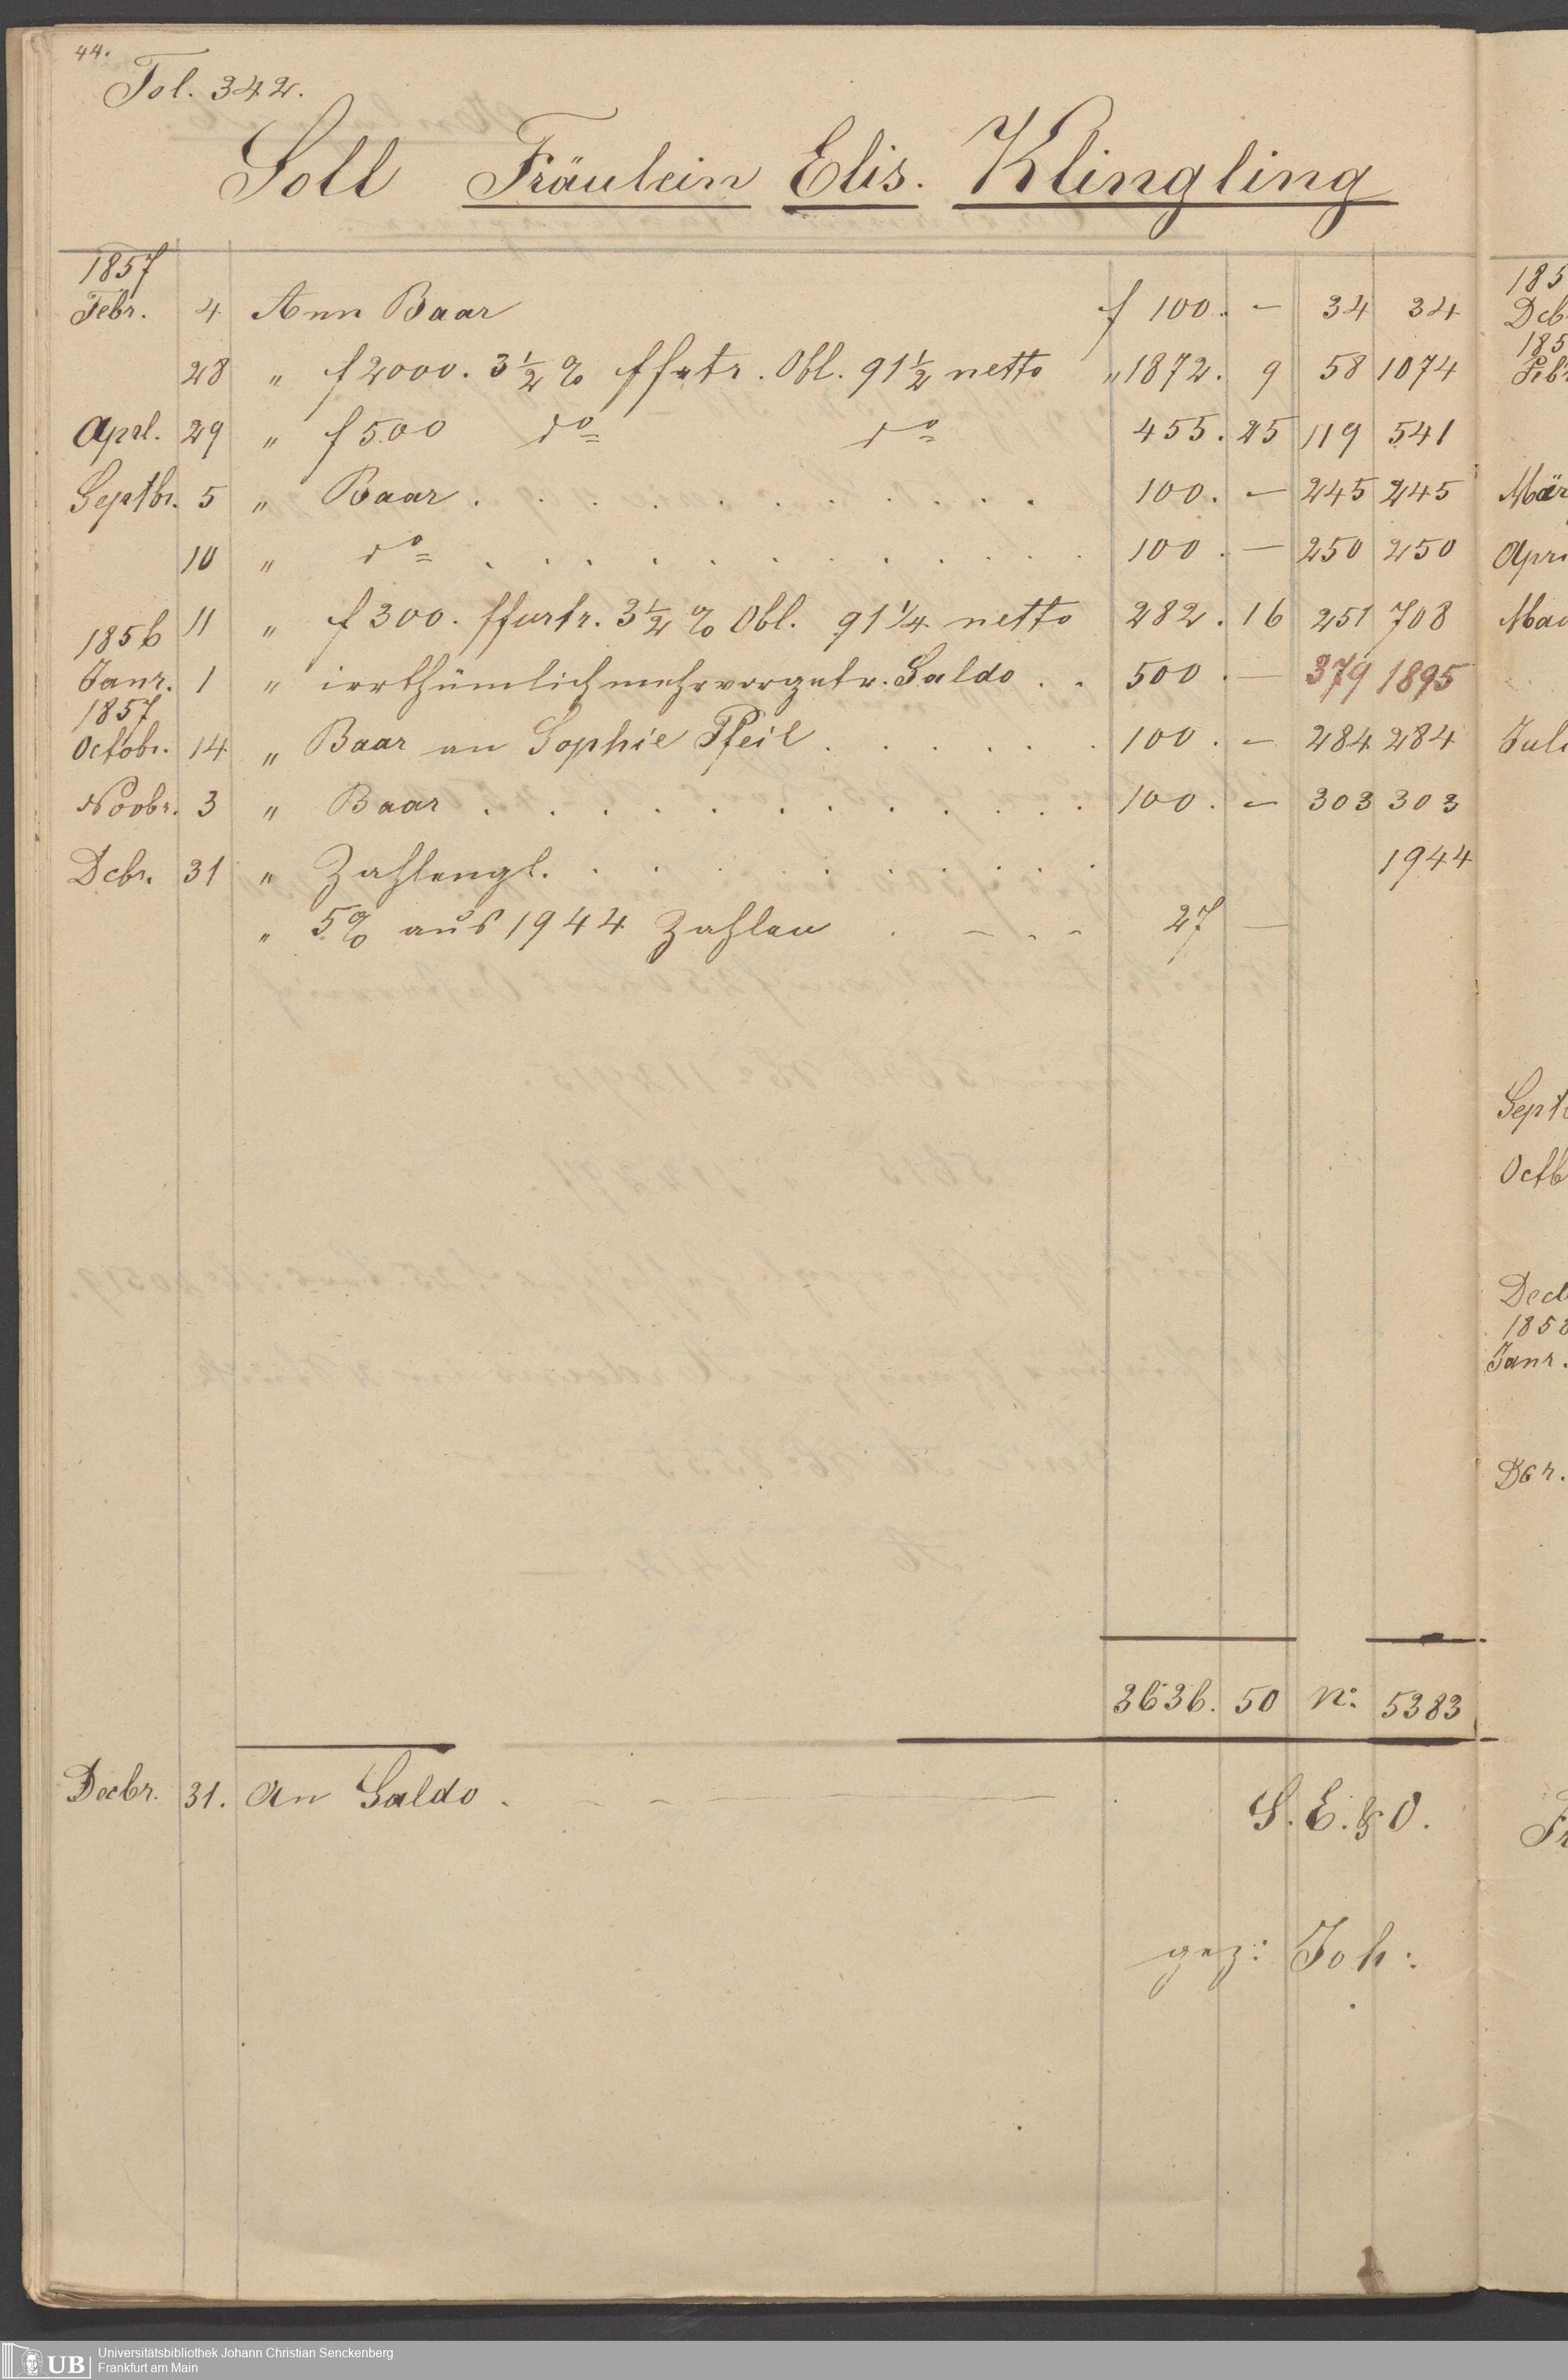 44.
Fol. 342.
Soll Fräulein Elis. Klingling
1857
Febr. 4 Ann Baar f 100. - 34 34
28 " f 2000. 3½ % ffrtr. Obl. 91½ netto " 1872. 9 58 1074
Aprl. 29 " f 500 do do 455. 25 119 541
Septbr. 5 " Baar . . . . . . . . . . . 100. - 245 245
10 " do . . . . . . . . . . . 100. - 250 250
11 " f 300. ffurtr. 3½ % Obl. 91¼ netto 282. 16 251 708
1856
Janr. 1 " irrthümlich mehr vorgetr. Saldo . . 500. - 379 1895
1857
Octobr. 14 " Baar an Sophie Pfeil . . . . . . 100. - 284 284
Novbr. 3 " Baar . . . . . . . . . . . 100. - 303 303
Dcbr. 31 " Zahlengl. . . . . . . . . . . 1944
" 5% aus 1944 Zahlen . - - - 27 -
3636. 50 No. 5383
Decbr. 31. An Saldo . - - -
S. E. & O.
gez: Joh:.
185
Dcb
185
Feb
Mär
Apri
Mai
Juli
Sept
Octb
Decb
1858
Janr.
Dbr.
Fr
UB
Universitätsbibliothek Johann Christian Senckenberg
Frankfurt am Main